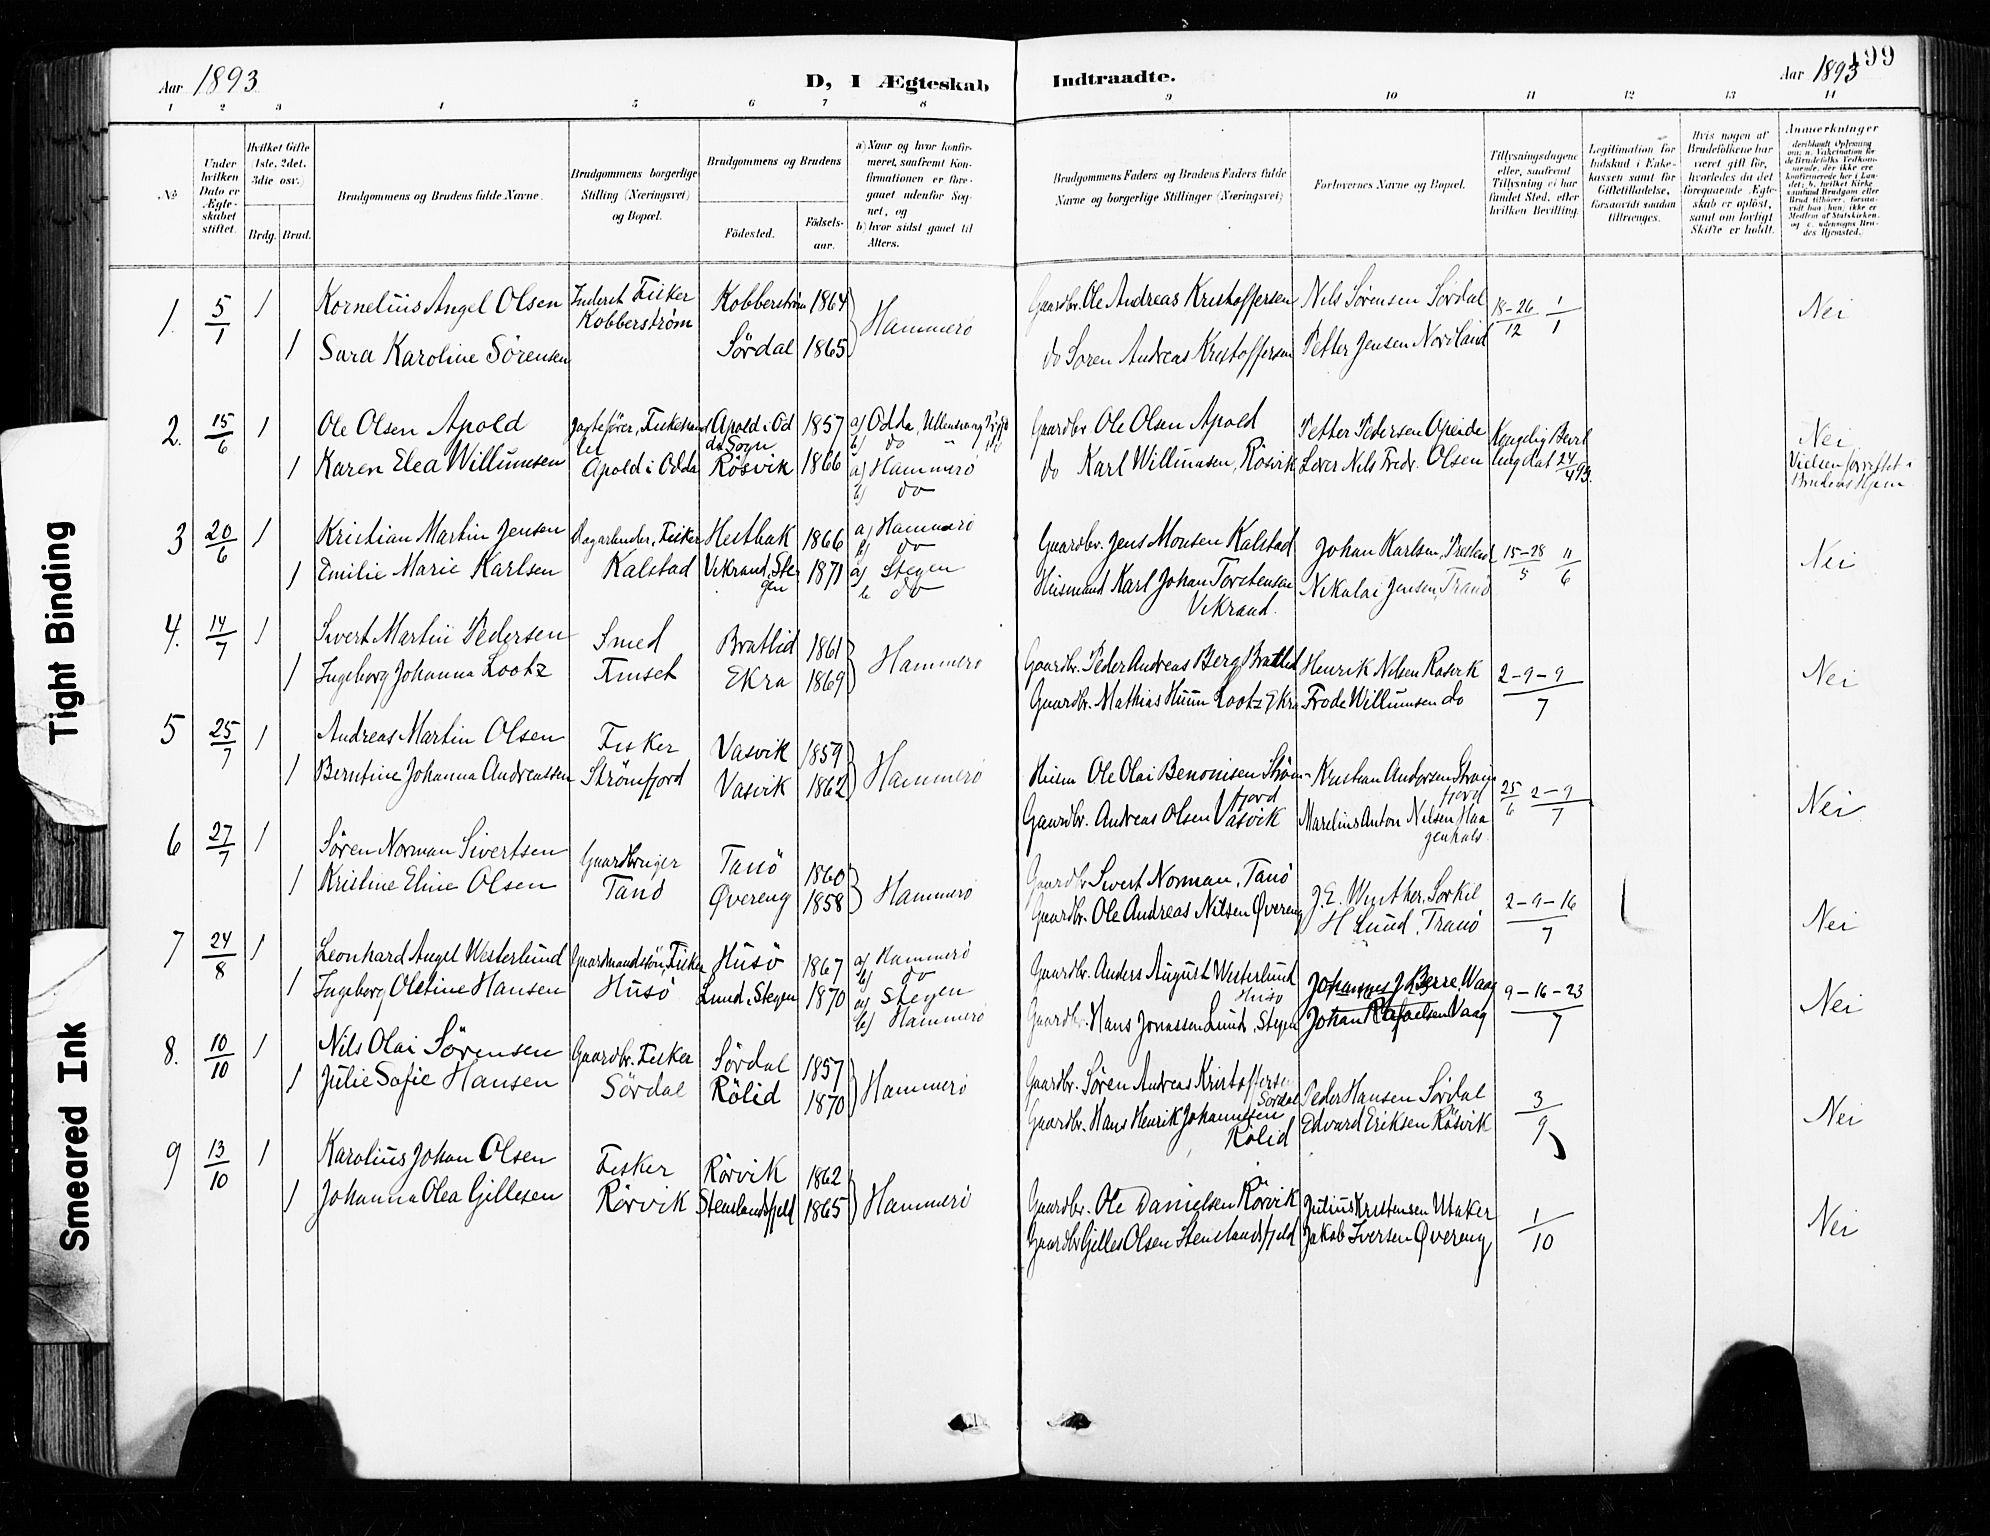 Aar 1893
D, I Ægteskab
Indtraadte.
Aar 1893
199
1 2 3 4 5 6 7 8 9 10 11 12 13 14
No
Under hvilken Dato er Ægteskabet stiftet.
Hvilket Gifte (1ste, 2det, 3die osv.)
Brdg. Brud.
Brudgommens og Brudens fulde Navne.
Brudgommens borgerlige Stilling (Næringsvei) og Bopæl.
Brudgommens og Brudens
Fødested.
Fødselsaar.
a) Naar og hvor konfirmeret, saafremt Konfirmationen er foregaaet udenfor Sognet, og
b) hvor sidst gaaet til Alters.
Brudgommens Faders og Brudens Faders fulde Navne og borgerlige Stillinger (Næringsvei)
Forlovernes Navne og Bopæl.
Tillysningsdagene eller, saafremt Tillysning ei har fundet Sted, efter hvilken Bevilling.
Legitimation for Indskud i Enkekassen samt for Giftetilladelse, forsaavidt saadan tiltrænges.
Hvis nogen af Brudefolkene har været gift før, hvorledes da det foregaaende Ægteskab er opløst, samt om lovligt Skifte er holdt.
Anmerkninger
1. 5/1 1 Kornelius Angel Olsen Inderst Fisker Kobberstrøm 1864 Hammerö Gaardbr. Ole Andreas Kristoffersen Nils Sörensen Sördal 18-26/12 1/1 Nei
Kobberström
1 Sara Karoline Sörensen Sördal 1865 do Sören Andreas Kristoffersen Petter Jensen Nordland
2. 15/6 1 Ole Olsen Apold Jagtefører, Fiskehand Apold i Od 1857 a) Odda, Ullensvang Gaardbr Ole Olsen Apold Petter Pedersen Opeide Kongelig Bevil Nei
ler da Sogn b) do
1 Karen Elea Willumsen Apold i Odda Rösvik 1866 a) Hammerö do Karl Willumsen, Rösvik Lærer Nils Fredr. Olsen ling dat 24/4 93. Vielsen forrettet i
b) do Brudens Hjem
3 20/6 1 Kristian Martin Jensen Dagarbeider, Fisker Hestbak 1866 a) Hammerö Gaardbr. Jens Monsen Kalstad Johan Karlsen, 15-28/5 11/6 Nei
b) do
1 Emilie Marie Karlsen Kalstad Vikrand, Ste 1871 a) Stegen Husmand Karl Johan Torstensen Nikolai Jensen, Tranö
gen b do Vikrand.
4. 14/7 1 Sivert Martin Pedersen Smed Bratlid 1861 Hammerö Gaardbr. Peder Andreas Berg Bratlid Henrik Nilsen Rösvik 2-9-9/7 Nei
1 Ingeborg Johanna Lootz Finset Ekra 1869 Gaardbr. Mathias Huun Lootz Ekra Frode Willumsen do
5 25/7 1 Andreas Martin Olsen Fisker Vasvik 1859 Hammerö Husm Ole Olai Benonisen Ström- Kristian Andersen Ström 25/6 2-9/7 Nei
fjord fjord
1 Berntine Johanna Andreassen Strömfjord Vasvik 1862 Gaardbr. Andreas Olsen Vasvik Marelius Anton Nilsen Haa
genhals.
6 27/7 1 Sören Norman Sivertsen Gaardbruger Tanö 1860 Hammerö Gaardbr Sivert Norman, Tanö J. E. Winther, Sorkil 2-9-16/7 Nei
1 Kristine Eline Olsen Tanö Øvereng 1858 Gaardbr. Ole Andreas Nilsen Øvereng H Lund, Tranö
7 24/8 1 Leonhard Angel Westerlund Gaardmandssön, Fisker Husö 1867 a) Hammerö Gaardbr. Anders August Westerlund Johannes J Berre, Waag 9-16-23/7 Nei
b) do Husö
1 Ingeborg Oletine Hansen Husö Lund, Stegen 1870 a) Stegen Gaardbr. Hans Jonassen Lund, Stegen Johan Rafaelsen Vaag
b) Hammerö
8. 10/10 1 Nils Olai Sörensen Gaardbr. Fisker Sördal 1857 Hammerö Gaardbr. Sören Andreas Kristoffersen Peder Hansen Sördal 3/9 Nei
Sördal
1 Julie Sofie Hansen Sördal Rölid 1870 Gaardbr. Hans Henrik Johannesen Edvard Eriksen Rösvik
Rölid
9 13/10 1 Karolius Johan Olsen Fisker Rörvik 1862 Hammerö Gaardbr. Ole Danielsen Rörvik Julius Kristensen Utaker 1/10 Nei
1 Johanna Olea Gillesen Rörvik Stenslandsfjeld 1865 Gaardbr Gilles Olsen Stenslandsfjeld Jakob Iversen Øvereng
Tight Binding
Smeared Ink